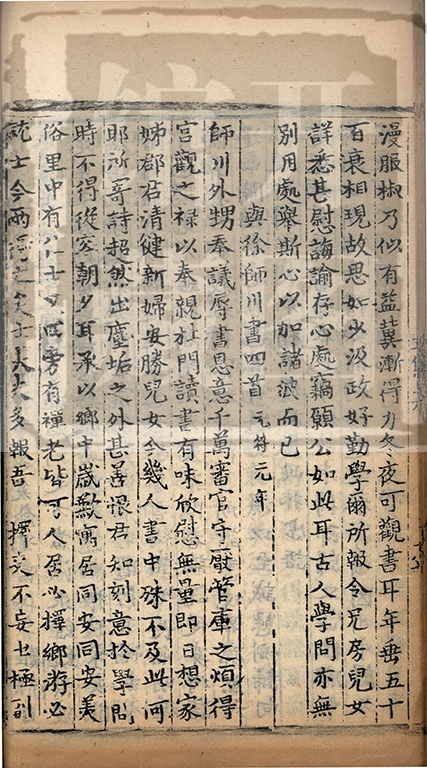 漫服椒乃似有益冀漸得力冬夜可觀書耳年垂五十
百衰相現故思如少汲政好勤學爾所報令兄房兒女
詳悉甚慰誨諭存心處竊願公如此耳古人學問亦無
別用處舉斯心以加諸彼而已
與徐師川書四首 元符元年
師川外甥奉議辱書恩意千萬審官守廨管庫之煩得
宮觀之祿以奉親杜門讀書有味欣慰無量即日想家
姊郡君清健新婦安勝兒女今幾人書中殊不及此何
耶所寄詩超然出塵垢之外甚善恨君知刻意於學問
時不得從容朝夕耳承以鄉中歲歉寓居同安同安美
俗里中有 士 旁有禪老皆可人居必擇鄉游必
就士今兩得之 士大夫多報吾 擇交不妄 極副